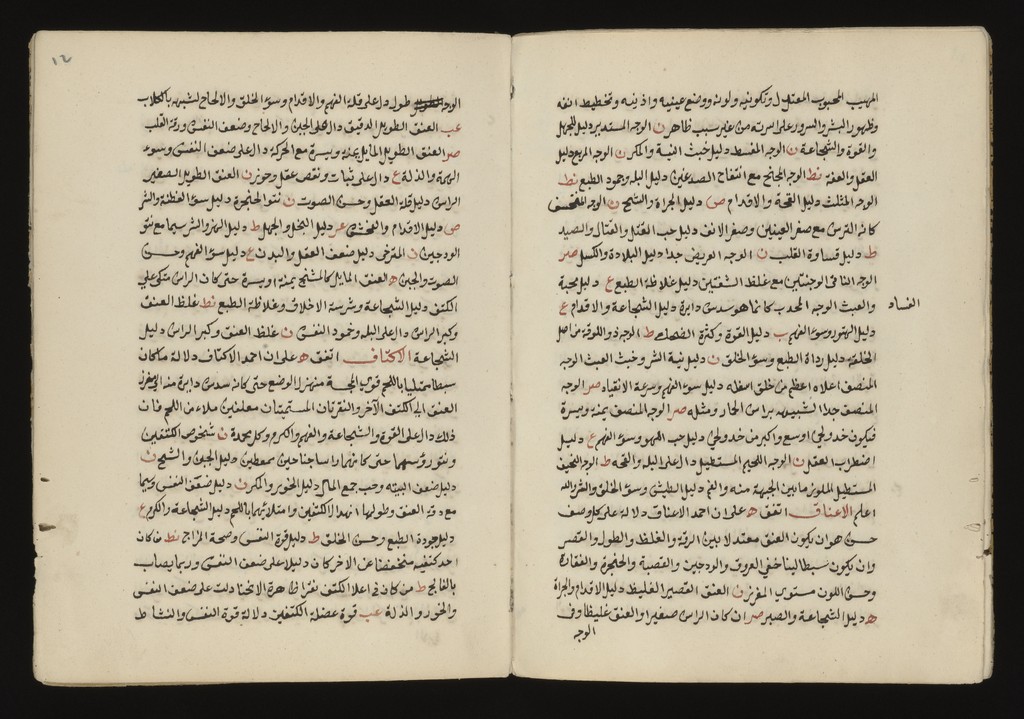 المهيب المحبوب المعتدل في تكوينه ولونه ووضع عينيه واذنيه وتخطيط انفه
وظهور البشر والسرور على اسرته من غير سبب ظاهر ن الوجه المستدير دليل الجهل
والقوة والشجاعة ن الوجه المفسط دليل خبث النية والمكر ن الوجه المربع دليل
العقل والعفة نط الوجه المجنح مع انتفاخ الصدغين دليل البله وجمود الطبع نط
الوجه المثلث دليل القحة والاقدام ص دليل الجراة والشح ن الوجه
كانه الترس مع صغر العينين وصغر الانف دليل حب القتل والقتال والصيد
ط دليل قساوة القلب ن الوجه العريض جدا دليل البلادة والكسل صر
الوجه الناتى الوجنتين مع غلظ الشفتين دليل غلاظة الطبع ع دليل محبة
الفساد
والعبث الوجه المحدب كانما هو سدس دايرة دليل الشجاعة والاقدام ع
دليل التهور وسوء الفهم ب دليل القوة وكثرة ط الوجه ذو اللوقة من اصل
الخلقة دليل رداة الطبع وسوء الخلق ن دليل نية الشر وخبث العبث الوجه
المنصف اعلاه اعظم من خلق اسفله دليل سوء الفهم وسرعة الانقياد صر الوجه
المنصف جدا الشبيه براس الحمار ومثله صر الوجه المنصف يمنة ويسرة
فيكون خد ولحى اوسع واكبر من خد ولحى دليل حب اللهو وسوء الفهم ع دليل
اضطراب العقل ن الوجه اللحيم المستطيل دال على البله والقحة ط الوجه النحيف
المستطيل الملوز ما بين الجبهة منه والفم دليل الطيش وسوء الخلق والشر والله
اعلم الاعناق اتفق ه على ان احمد الاعناق دلالة على كل وصف
حسن هو ان يكون العنق معتدلا بين الرقة والغلظ والطول والقصر
وان يكون سبطا لينا خفي العروق والودجين والقصبة والحنجرة والفقارة
وحسن اللون مستوي المغرز ن العنق القصير الغليظ دليل الاقدام والجراة
ه دليل الشجاعة والصبر صر ان كان الراس صغيرا والعنق غليظا وفى
الوجه
١٢
الوجه طول دل على قلة الفهم والاقدام وسوء الخلق والالحاح لشبهه بالكلاب
عب العنق الطويل الدقيق دال على الجبن والالحاح وضعف النفس ورقة القلب
صر العنق الطويل المايل يمنة ويسرة مع الحركة دال على ضعف النفس وسوء
الهمة والذلة ع دال على ثبات ونقص عقل وحزن ن العنق الطويل الصغير
الراس دليل قلة العقل وحسن الصوت ن نتو الحنجرة دليل سوء الفطنة والشر
ص دليل الاقدام والفحش عر دليل البخل والجهل ط دليل الهزو والشر سيما مع نتو
الودجين ن المترخى دليل ضعف العقل والبدن ع دليل سوء الفهم وحسن
الصوت والجبن ه العنق المايل كالمتشنج يمنة او يسرة حتى كان الراس متكى على
الكتف دليل الشجاعة وشرسة الاخلاق وغلاظة الطبع نط غلظ العنق
وكبر الراس دال على البله وخمود النفس ن غلظ العنق وكبر الراس دليل
الشجاعة الاكتاف اتفق ه على ان احمد الاكتاف دلالة ما كان
سبطا ممتليا باللحم قوى اللحمة منهزز الوضع حتى كانه سدس دايرة منه الى مغرز
العنق الى الكتف الآخر والنقرتان المستميتان معلفين ملاء من اللحم فان
ذلك دال على القوة والشجاعة والفهم والكرم وكل محمدة ن شخوص الكتفين
ونتو رؤسهما حتى كانهما راسا جناحين ممعطين دليل الجبن والشح ن
دليل ضعف البنية وحب جمع المال دليل الخور والمكر ن دليل ضعف النفس سيما
مع دقة العنق وطولها انهدال الكتفين وامتلايهما باللحم دليل الشجاعة والكرم ع
دليل جودة الطبع وحسن الخلق ط دليل قوة النفس وصحة المزاج نط من كان
احد كتفيه منخفضا عن الاخر كان دليلا على ضعف النفس وربما يصاب
بالفالج ط من كان فى اعلا الكتف نقرات ظاهرة الانحنا دلت على ضعف النفس
والخور والذلة عب قوة عضلة الكتفين دلالة قوة النفس والنشاط